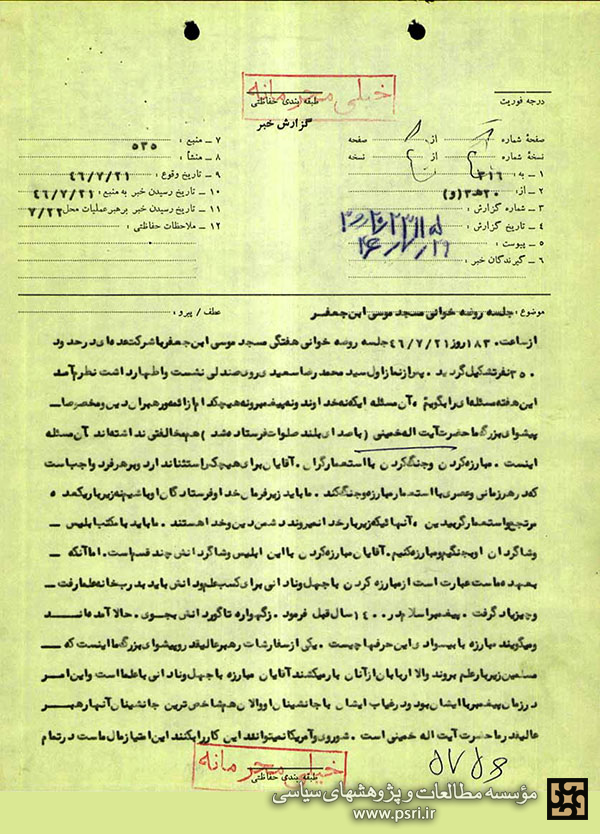 خیلی محرمانه
طبقه بندی حفاظتی
درجه فوریت
گزارش خبر
صفحهٔ شماره از صفحه
نسخهٔ شماره از نسخه
۱ – به : ۳۱۶
۲ – از: ۲۰هـ ۳(و)
۳ – شماره گزارش :
۴ – تاریخ گزارش :
۵ – پیوست :
۶ – گیرندگان خبر :
۷ – منبع : ۵۳۵
۸ – منشأ :
۹ – تاریخ وقوع : ۴۶/۷/۲۱
۱۰ – تاریخ رسیدن خبر به منبع : ۴۶/۷/۲۱
۱۱ – تاریخ رسیدن خبر برهبر عملیات محل ۷/۲۲
۱۲ – ملاحظات حفاظتی :
موضوع : جلسه روضه خوانی مسجد موسی ابن جعفر
عطف / پیرو :
از ساعت ۱۸۳۰ روز ۴۶/۷/۲۱ جلسه روضه خوانی هفتگی مسجد موسی ابن جعفر با شرکت عده ای در حدود
۳۵۰ نفر تشکیل گردید . پس از نماز اول سید محمد رضا سعید ی روی صندلی نشست و اظهار داشت نظرم آمد
این هفته مسئله ای را بگویم . آن مسئله ایکه نه خداوند و نه پیغمبر و نه هیچکدام از ائمه و رهبران دین و مخصوصا
پیشوای بزرگ ما حضرت آیت اله خمینی ( با صدای بلند صلوات فرستاده شد ) هم مخالفتی نداشته اند آن مسئله
اینست . مبارزه کردن و جنگ کردن با استعمارگران . آقایان برای هیچکس استثنا ندارد و بر هر فرد واجب است
که در هر زمانی و عصری با استعمار مبارزه و جنگ کند . ما باید زیر فرمان خدا و فرستادگان او باشیم نه زیر بار یکعده
مرتجع و استعمارگر بیدین . آنهائیکه زیر بار خدا نمیروند دشمن دین و خدا هستند . ما باید با مکتب ابلیس
و شاگردان او بجنگیم و مبارزه کنیم . آقایان مبارزه کردن با این ابلیس و شاگردانش چند قسم است . اما آنکه
بعهده ماست عبارت است از مبارزه کردن با جهل و نادانی برای کسب علم و دانش باید بدرب خانه علما رفت
و چیز یاد گرفت . پیغمبر اسلام در ۱۴۰۰ سال قبل فرمود . ز گهواره تا گور دانش بجوی . حالا آمده اند
و میگویند مبارزه با بیسوادی این حرفها چیست . یکی از سفارشات رهبر عالیقدر و پیشوای بزرگ ما اینست که
مسلمین زیر بار علم بروند والا اربابان از آنان بار میکشند آقایان مبارزه با جهل و نادانی با علما است و این امر
در زمان پیغمبر با ایشان بود و در غیاب ایشان با جانشینان او و الان هم شاخص ترین جانشینان آنها رهبر
عالیقدر ما حضرت آیت اله خمینی است . شوروی و آمریکا نمیتوانند این کار را بکنند این امتیاز مال ماست در تمام
خیلی محرمانه
طبقه بندی حفاظتی
مؤسسه مطالعات و پژوهشهای سیاسی
www.psri.ir